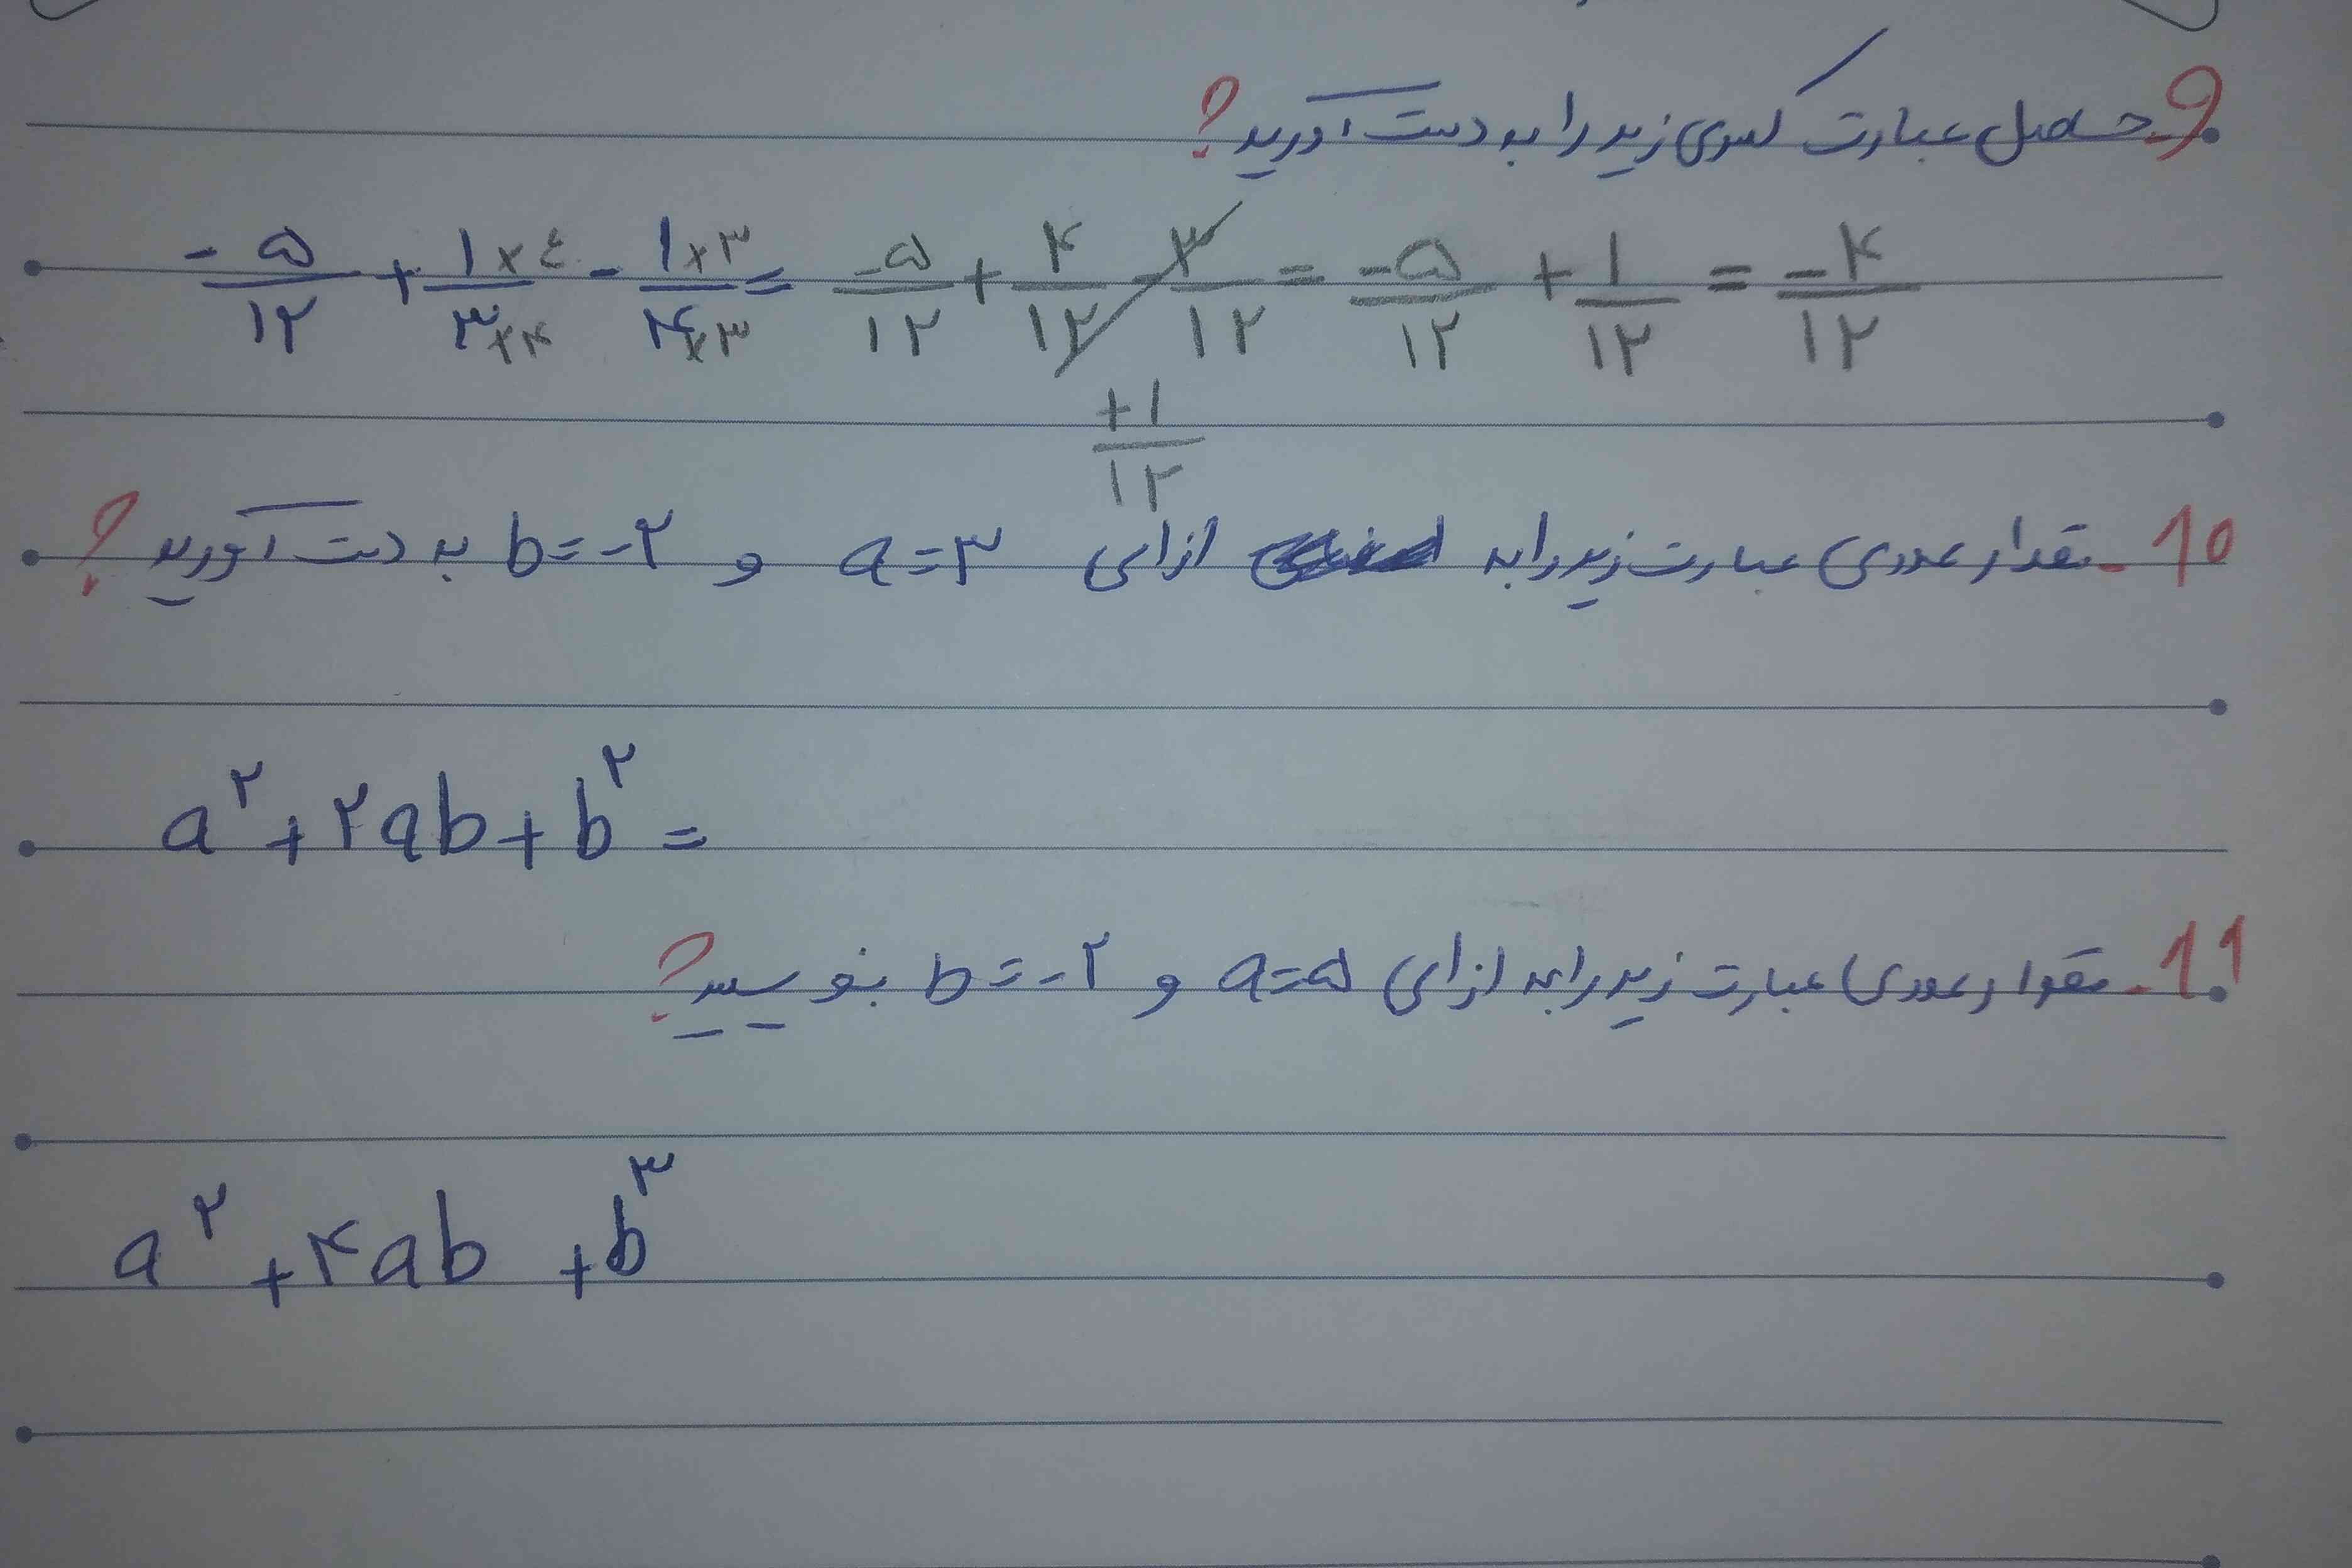 9- حاصل عبارت کسری زیر را به دست آورید؟
-۵/۱۲ + ۱×٤/۳×۴ - ۱×۳/۴×۳ = -۵/۱۲ + ۴/۱۲ - ۳/۱۲ = -۵/۱۲ + ۱/۱۲ = -۴/۱۲
+۱/۱۲
10- مقدار عددی عبارت زیر را به ازای a=۳ و b=-۲ به دست آورید؟
a^۲ + ۲ab + b^۲ =
11- مقدار عددی عبارت زیر را به ازای a=۵ و b=-۲ بنویسید؟
a^۲ + ۴ab + b^۳